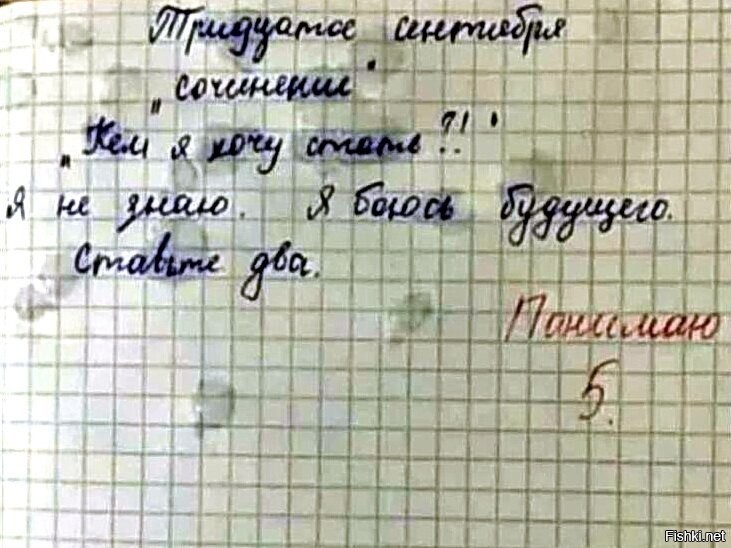 Тридцатое сентября
„сочинение"
„Кем я хочу стать?!"
Я не знаю. Я боюсь будущего.
Ставьте два.
Понимаю
5.
Fishki.net